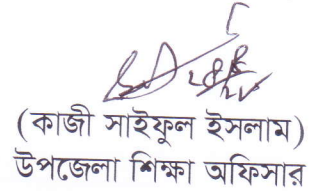 (কাজী সাইফুল ইসলাম)
উপজেলা শিক্ষা অফিসার